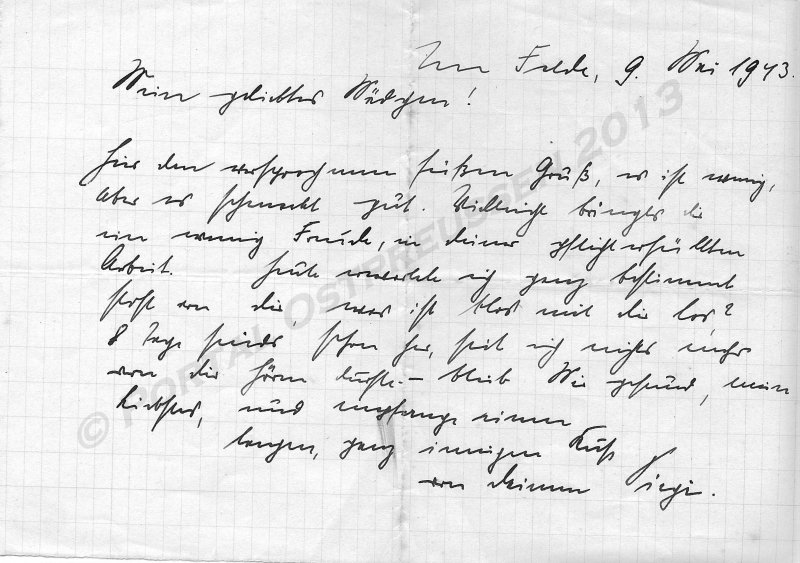 Im Felde, 9. Mai 1943.
Mein geliebtes Mädchen!
Für den versprochenen süßen Gruß, es ist wenig,
aber es schmeckt gut. Vielleicht bringts dir
ein wenig Freude, in deiner pflichterfüllten
Arbeit. Heute erwartete ich ganz bestimmt
Post von dir, was ist blos mit dir los?
8 Tage sinds schon her, seit ich nichts mehr
von dir hören durfte. – bleib mir gesund, mein
Liebstes, und empfange einen
langen, ganz innigen Kuß
von deinem Siegi.
© PORTAL OSTPREUSSEN 2013